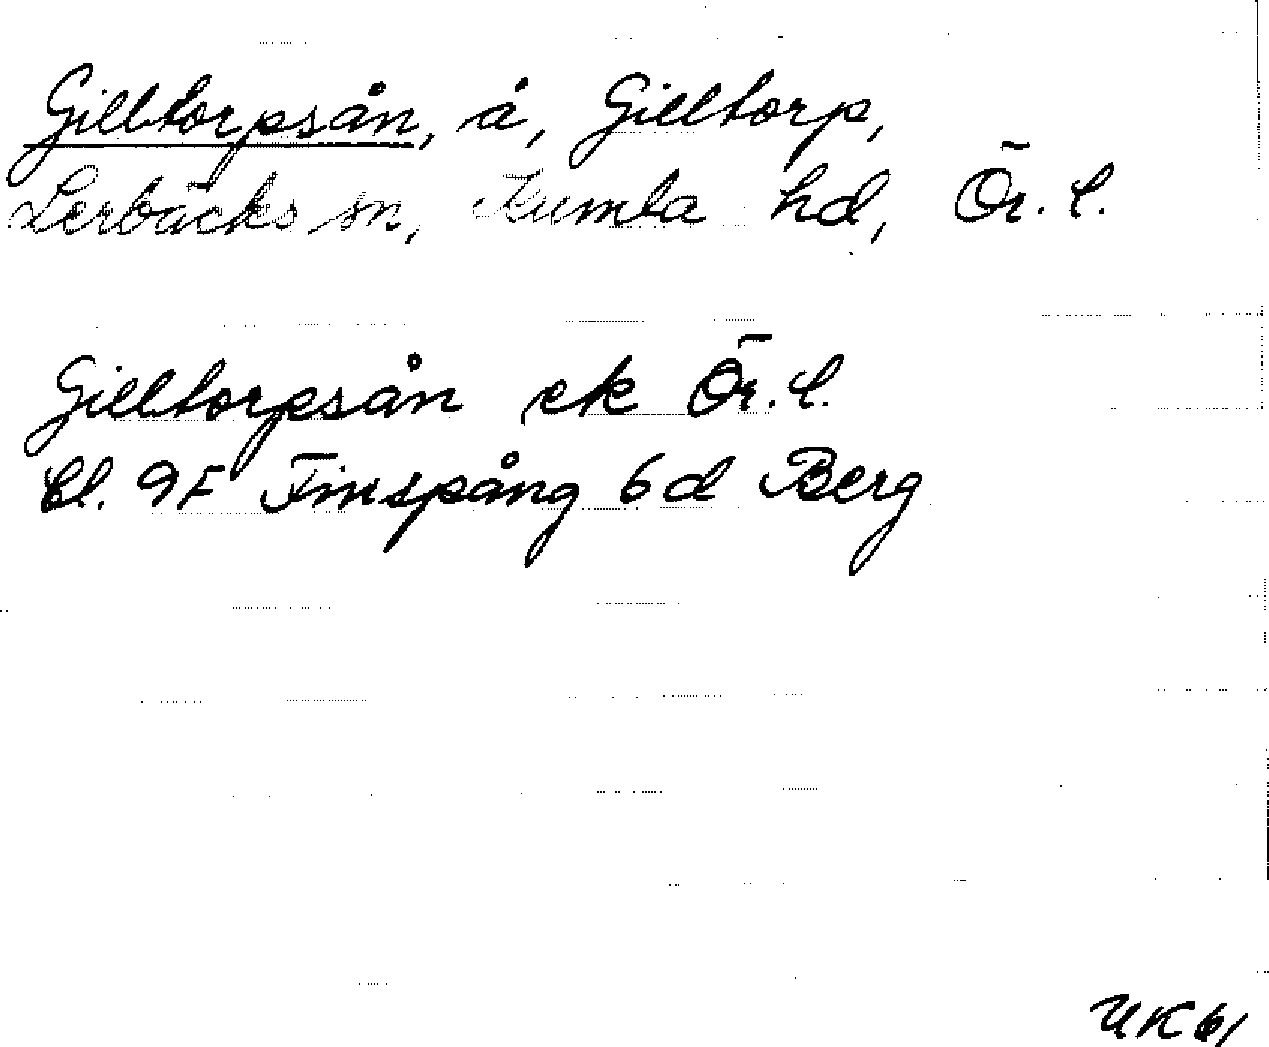 Gilltorpsån, å, Gilltorp,
Lerbäcks sn, Kumla hd, Ör. l.
Gilltorpsån ek Ör. l.
Bl. 9F Finspång 6d Berg
UK61